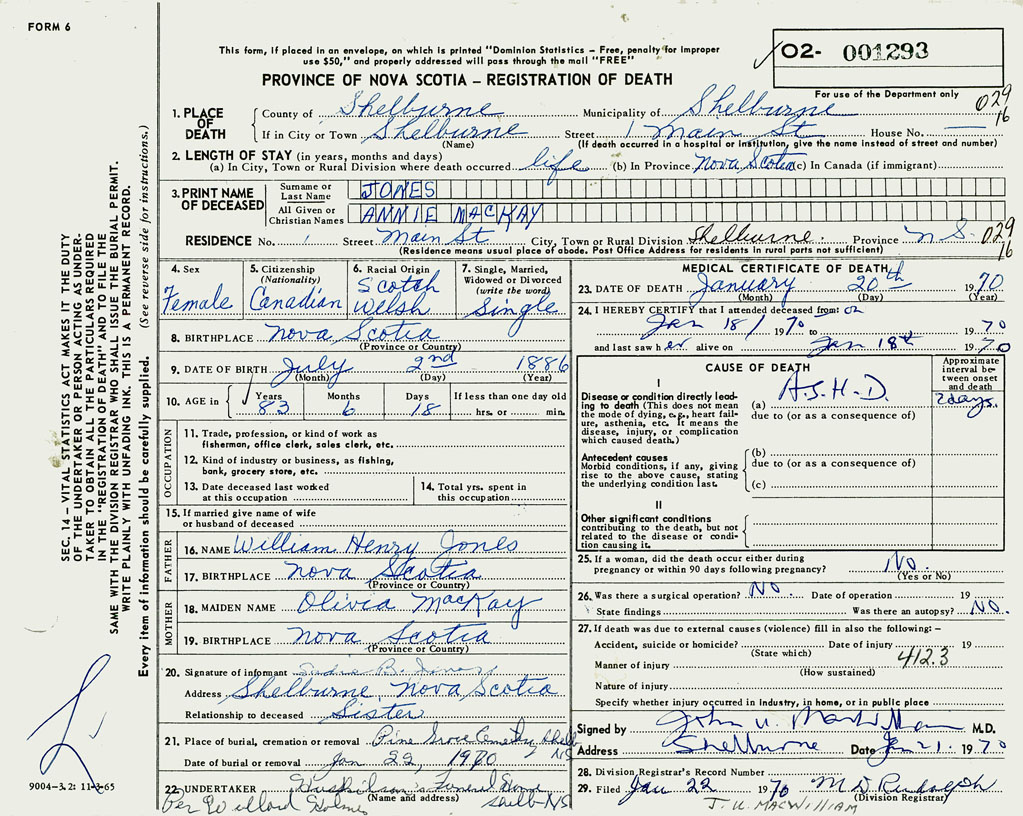 FORM 6
This form, if placed in an envelope, on which is printed "Dominion Statistics – Free, penalty for improper
use $50," and properly addressed will pass through the mail "FREE"
02- 001293
PROVINCE OF NOVA SCOTIA – REGISTRATION OF DEATH
For use of the Department only
029
16
1. PLACE OF DEATH
County of Shelburne Municipality of Shelburne
If in City or Town Shelburne Street 1 Main St House No. —
(Name) (If death occurred in a hospital or institution, give the name instead of street and number)
2. LENGTH OF STAY (in years, months and days)
(a) In City, Town or Rural Division where death occurred life (b) In Province Nova Scotia (c) In Canada (if immigrant)
3. PRINT NAME OF DECEASED
Surname or Last Name JONES
All Given or Christian Names ANNIE MACKAY
RESIDENCE No. 1 Street Main St City, Town or Rural Division Shelburne Province N S. 029
16
(Residence means usual place of abode. Post Office Address for residents in rural parts not sufficient)
4. Sex Female
5. Citizenship (Nationality) Canadian
6. Racial Origin Scotch Welsh
7. Single, Married, Widowed or Divorced (write the word) Single
8. BIRTHPLACE Nova Scotia
(Province or Country)
9. DATE OF BIRTH July 2nd 1886
(Month) (Day) (Year)
10. AGE in Years 83 Months 6 Days 18 If less than one day old
hrs. or min.
OCCUPATION
11. Trade, profession, or kind of work as
fisherman, office clerk, sales clerk, etc.
12. Kind of industry or business, as fishing,
bank, grocery store, etc.
13. Date deceased last worked
at this occupation
14. Total yrs. spent in
this occupation
15. If married give name of wife
or husband of deceased
FATHER
16. NAME William Henry Jones
17. BIRTHPLACE Nova Scotia
(Province or Country)
MOTHER
18. MAIDEN NAME Olivia MacKay
19. BIRTHPLACE Nova Scotia
(Province or Country)
20. Signature of informant
Address Shelburne, Nova Scotia
Relationship to deceased Sister
21. Place of burial, cremation or removal Pine Grove Cemetery Shel
NS
Date of burial or removal Jan 22, 1970
22. UNDERTAKER Huskilson's Funeral Home
(Name and address) Shelb-NS
Per Willard
MEDICAL CERTIFICATE OF DEATH
23. DATE OF DEATH January 20th 1970
(Month) (Day) (Year)
24. I HEREBY CERTIFY that I attended deceased from: on
Jan 18/ 1970 to 19 70
and last saw her alive on Jan 18th 19 70
CAUSE OF DEATH
Approximate interval between onset and death
I
Disease or condition directly leading to death (This does not mean the mode of dying, e.g., heart failure, asthenia, etc. It means the disease, injury, or complication which caused death.)
(a) A.S.H.D. 2 days.
due to (or as a consequence of)
Antecedent causes
Morbid conditions, if any, giving rise to the above cause, stating the underlying condition last.
(b)
due to (or as a consequence of)
(c)
II
Other significant conditions
contributing to the death, but not related to the disease or condition causing it.
25. If a woman, did the death occur either during
pregnancy or within 90 days following pregnancy? No.
(Yes or No)
26. Was there a surgical operation? No Date of operation 19
State findings Was there an autopsy? No.
27. If death was due to external causes (violence) fill in also the following: –
Accident, suicide or homicide? Date of injury 19
(State which) 412.3
Manner of injury
(How sustained)
Nature of injury
Specify whether injury occurred in industry, in home, or in public place
Signed by M.D.
Address Shelburne Date Jan 21. 1970
28. Division Registrar's Record Number
29. Filed Jan 22 1970 M D Rudolph
(Division Registrar)
J. U. MACWILLIAM
SEC. 14 – VITAL STATISTICS ACT MAKES IT THE DUTY
OF THE UNDERTAKER OR PERSON ACTING AS UNDER-
TAKER TO OBTAIN ALL THE PARTICULARS REQUIRED
IN THE "REGISTRATION OF DEATH" AND TO FILE THE
SAME WITH THE DIVISION REGISTRAR WHO SHALL ISSUE THE BURIAL PERMIT.
WRITE PLAINLY WITH UNFADING INK. THIS IS A PERMANENT RECORD.
Every item of information should be carefully supplied. (See reverse side for instructions.)
9004-3.2: 11-3-65